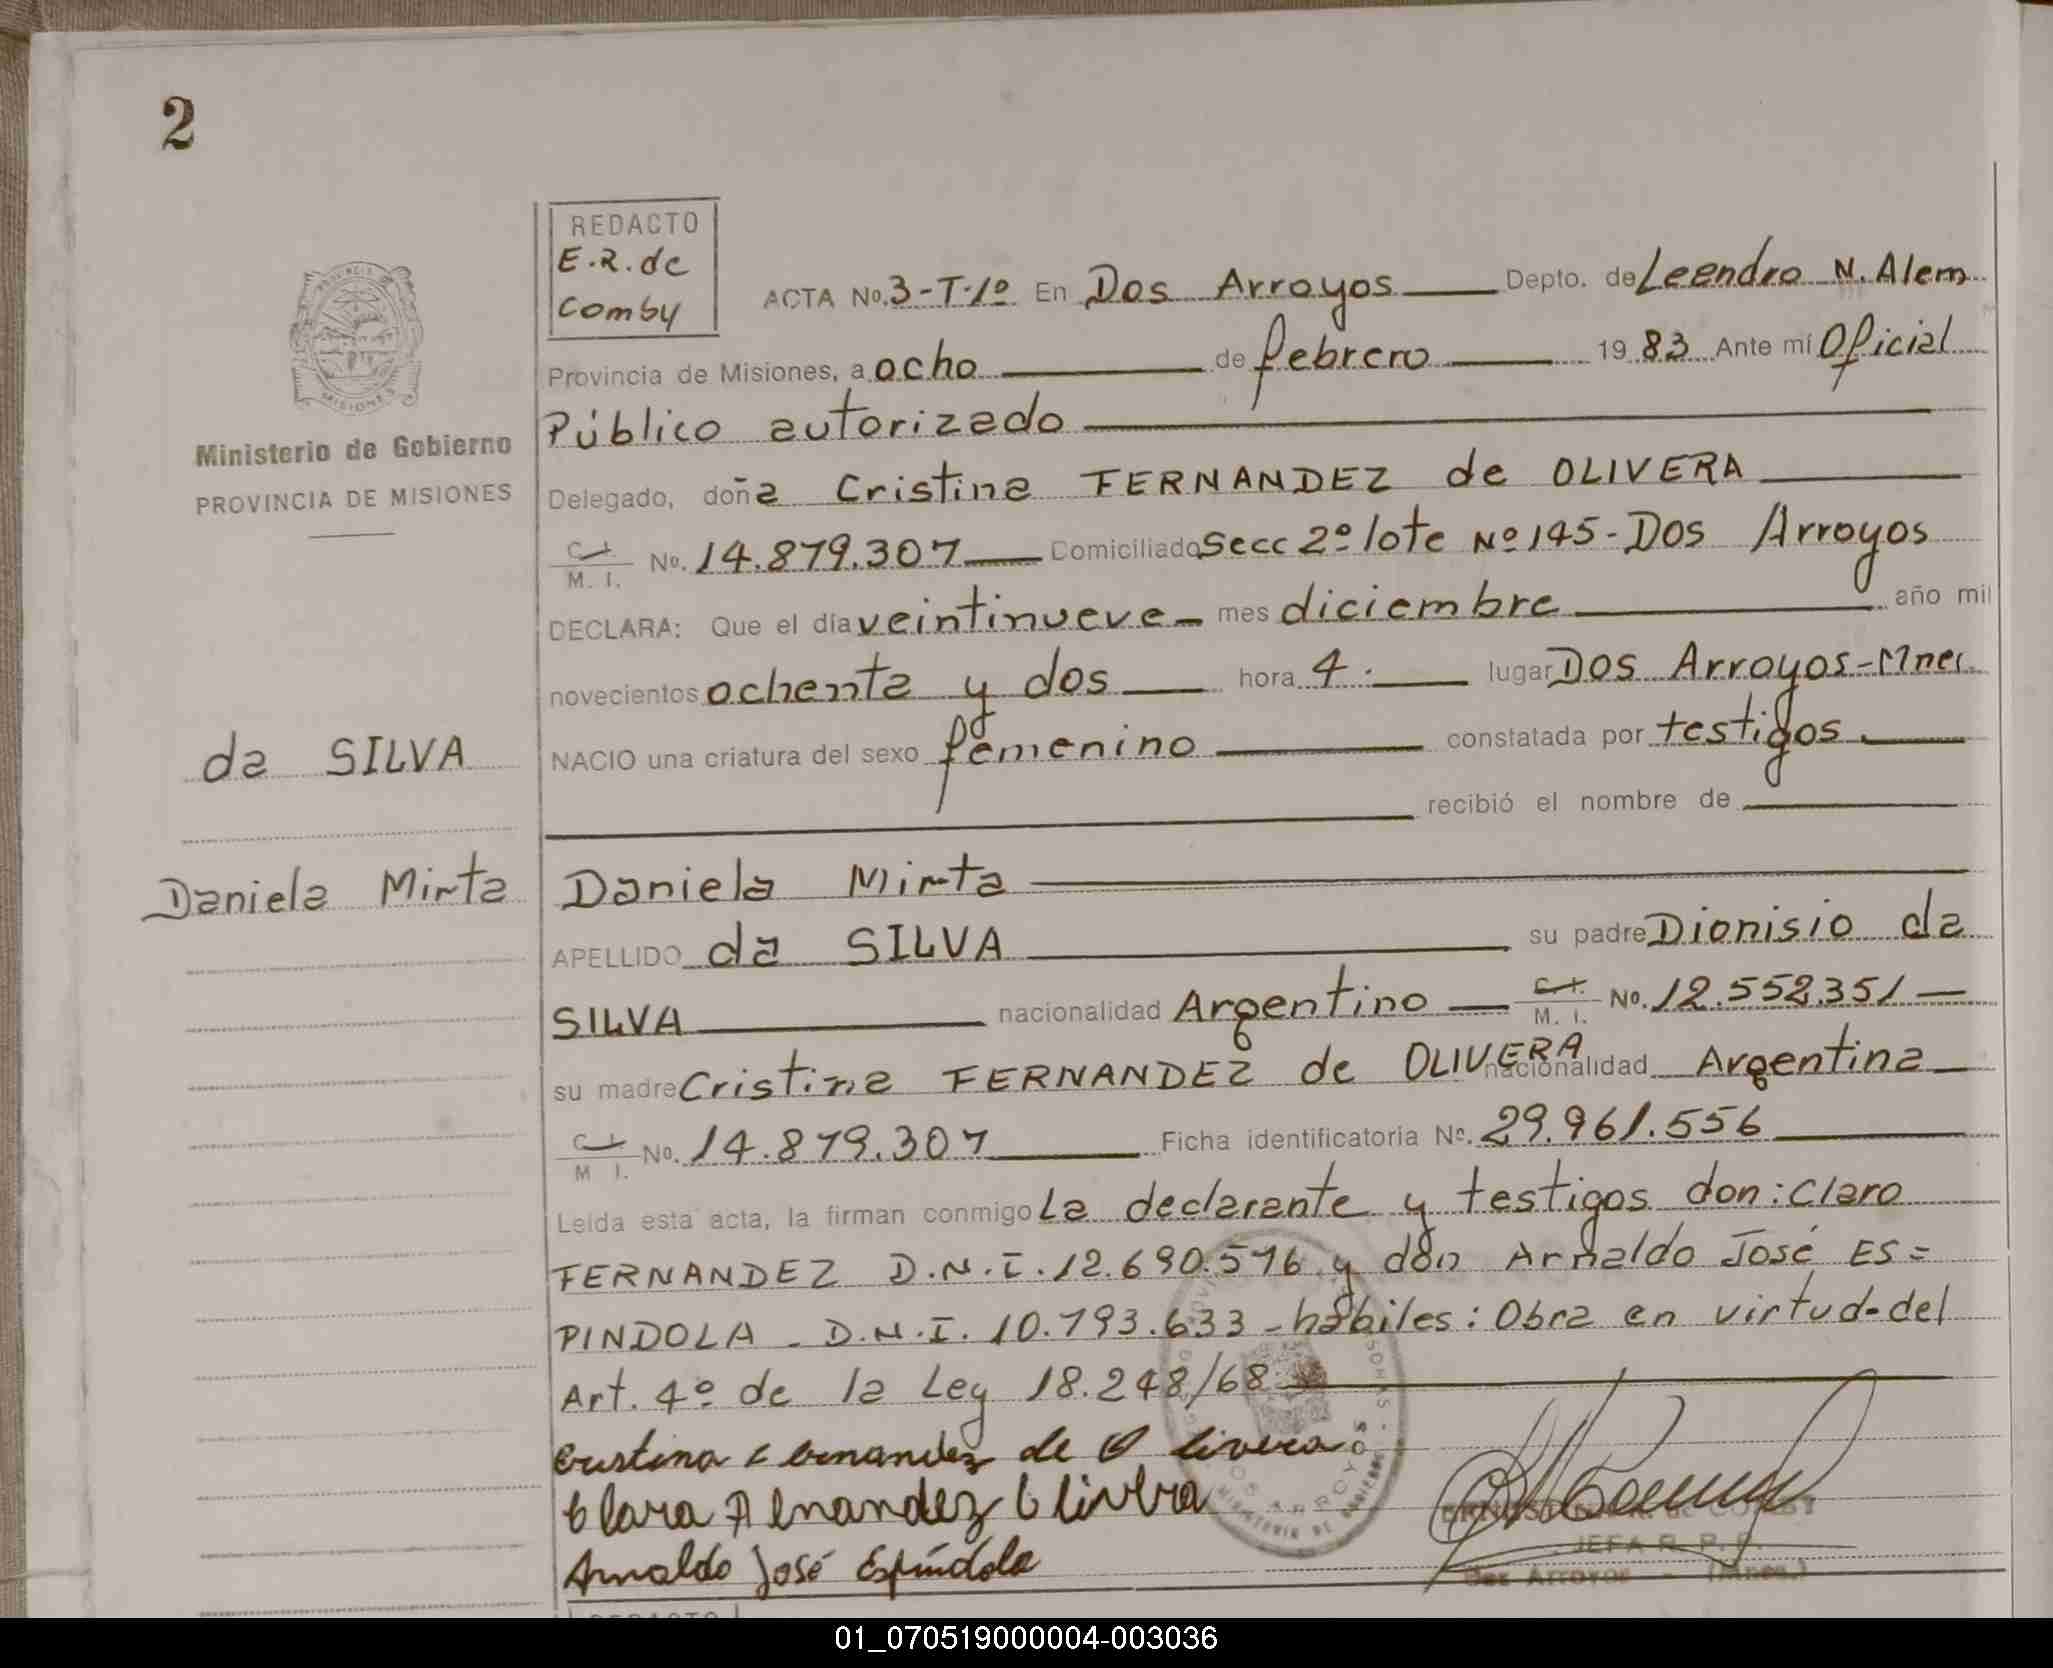 2
REDACTO
E.R. de
Comby
ACTA No. 3-T.1º En Dos Arroyos Depto. de Leandro N. Alem
Provincia de Misiones, a ocho de febrero 1983 Ante mí Oficial
Público autorizado
Ministerio de Gobierno
PROVINCIA DE MISIONES
Delegado, doña Cristina FERNANDEZ de OLIVERA
C.I. M. I. No. 14.879.307 Domiciliado Secc 2º lote Nº 145-Dos Arroyos
DECLARA: Que el día veintinueve mes diciembre año mil
novecientos ochenta y dos hora 4. lugar Dos Arroyos-Mnes.
da SILVA
NACIO una criatura del sexo femenino constatada por testigos.
recibió el nombre de
Daniela Mirta
Daniela Mirta
APELLIDO da SILVA su padre Dionisio da
SILVA nacionalidad Argentino C.I. M. I. No. 12.552.351
su madre Cristina FERNANDEZ de OLIVERA nacionalidad Argentina
C.I. M I. No. 14.879.307 Ficha identificatoria Nº. 29.961.556
Leída esta acta, la firman conmigo La declarante y testigos don: Claro
FERNANDEZ D.N.I. 12.690.576 y don Arnaldo José ES=
PINDOLA - D.N.I. 10.793.633 - hábiles: Obra en virtud-del
Art. 4º de la Ley 18.248/68
Cristina Fernandez de Olivera
Clara Fernandez Olivera
Arnaldo José Espíndola
DOS ARROYOS
MINISTERIO DE GOBIERNO
JEFA R. P. P.
Dos Arroyos - (Mnes.)
REDACTO
01_070519000004-003036